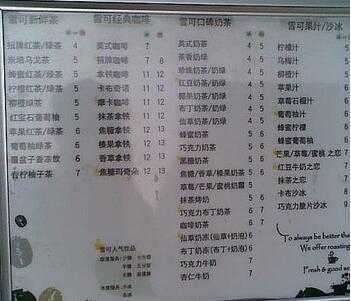 雪可新鲜茶
招牌红茶/绿茶 4 5
东坡乌龙茶 4 5
蜂蜜红茶/绿茶 4 5
柠檬红茶/绿茶 4 5
柳橙绿茶 5
红宝石葡萄柚 5
苹果红茶/绿茶 6
葡萄柚绿茶 6
覆盆子香冻饮 6
台柠柚子茶 7
雪可经典咖啡
美式咖啡 7
招牌咖啡 7 8
拿铁咖啡 11 12
卡布奇诺 11 12
摩卡咖啡 11 12
抹茶拿铁 11 12
焦糖拿铁 12 13
榛果拿铁 12 13
香草拿铁 12 13
焦糖玛奇朵 12 13
雪可人气饮品
雪可口碑奶茶
英式奶茶 4 5
茶香奶绿 4 5
珍珠奶茶/奶绿 4 5
红豆奶茶/奶绿 4 5
布丁奶茶/奶绿 4 5
仙草奶茶/奶绿 4 5
蜂蜜奶茶 5
巧克力奶茶 5
黑糖奶茶 5
焦糖/香草/榛果奶茶 5
草莓/芒果/蜜桃奶霜 5
抹茶烤奶 5 6
巧克力布丁奶茶 6 7
咖啡奶茶 6 7
仙草奶冻(仙草+奶泡) 6
布丁奶冻(布丁+奶泡) 6
巧克力牛奶 7
杏仁牛奶 7
雪可果汁/沙冰
柠檬汁 4 5
乌梅汁 4 5
柳橙汁 5
苹果汁 6
草莓石榴汁 6
葡萄柚汁 6
蜂蜜柠檬 6
蜂蜜葡萄柚 6
芒果/草莓/蜜桃 之恋 7
红豆牛奶之恋 7
抹茶之恋 7
卡布沙冰 8
巧克力脆片沙冰 9
To always be better tha
We offer roasting
Fresh & good se